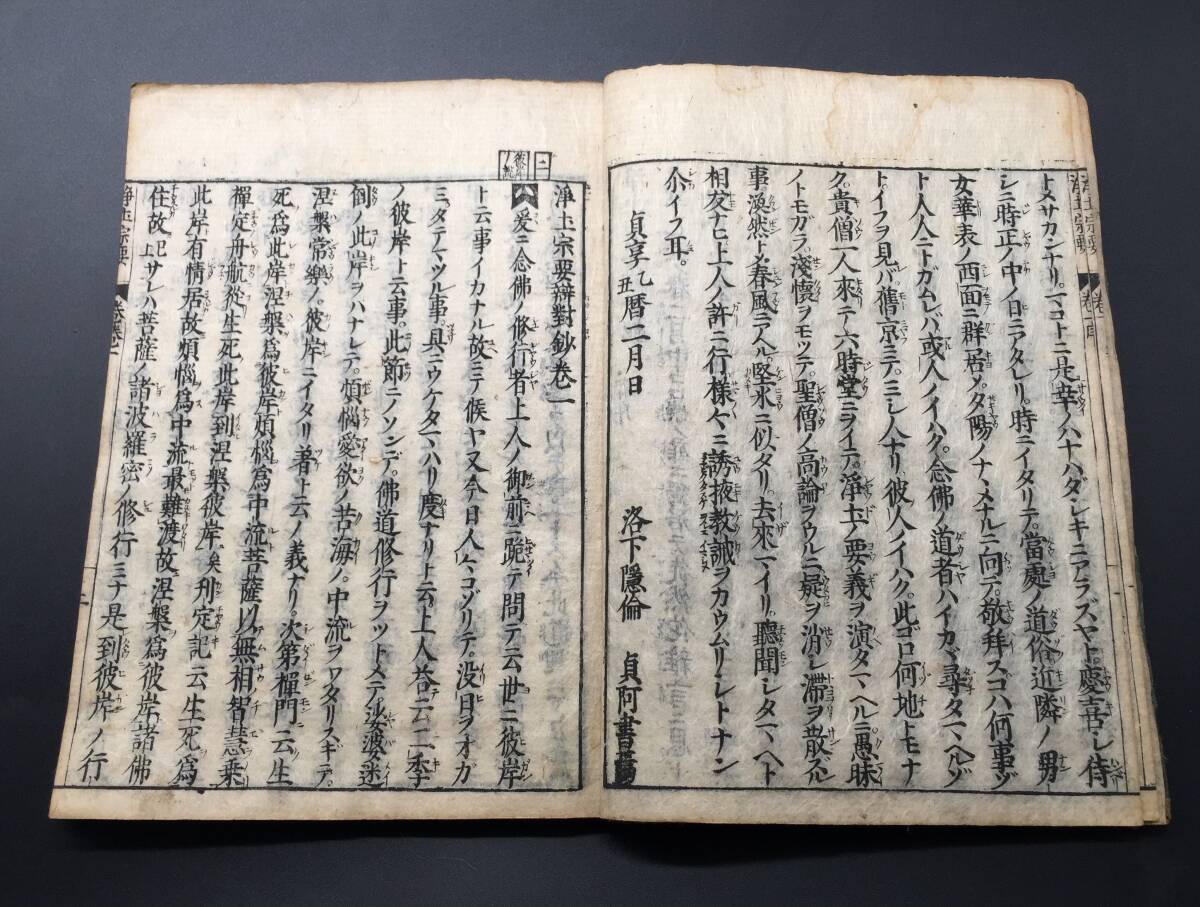 トサカンナリ。マコトニ是幸ノハナハダシキニアラズヤト慶喜シ侍
シニ時正ノ中ノ日ニアタレリ。時ニイタリテ。當處ノ道俗近隣ノ男
女華表ノ西面ニ群居〆夕陽ノナヽメナルニ向テ。敬拜スコハ何事ゾ
ト人人ニトガムレバ或人ノイハク。念佛ノ道者ハイカヾ尋タマヘルゾ
ト。イフヲ見バ舊京ニテ。ミシ人ナリ彼人ノイハク。此ゴロ何地トモナ
ク。貴僧一人來テ六時堂ニヲイテ。淨土ノ要義ヲ演タマヘル。愚昧
ノトモガラ淺懷ヲモツテ。聖僧ノ高論ヲウルニ疑ヲ消シ滯ヲ散ズル
事渙然ト〆春風ニアヘル。堅氷ニ似タリ。去來マイリ。聽聞シタマヘト
相友ナヒ上人ノ許ニ行樣々ニ誘掖教誡ヲカウムリシトナン
尒イフ耳。
貞享乙丑暦二月日
洛下隱倫 貞阿書
淨土宗要辯對鈔卷一
爰ニ念佛ノ修行者上人ノ御前ニ跪テ問テ云世ニ彼岸
ト云事イカナル故ニテ候ヤ又今日人々コゾリテ。没日ヲオガ
ミタテマツル事。具ニウケタマハリ度ナリト云上人荅云二季
ノ彼岸ト云事。此節ニノソンデ。佛道修行ヲツトメテ娑婆迷
倒ノ此岸ヲハナレテ。煩惱愛欲ノ苦海ノ。中流ヲワタリスギテ。
涅槃常樂ノ。彼岸ニイタリ着ト云ノ義ナリ。次第禪門云生
死爲此岸涅槃爲彼岸煩惱爲中流菩薩以無相智慧乗
禪定舟航從生死此岸到涅槃彼岸矣刋定記云生死爲
此岸有情居故煩惱爲中流最難渡故涅槃爲彼岸諸佛
住故記上サレハ菩薩ノ諸波羅密ノ修行ミナ是到彼岸ノ行